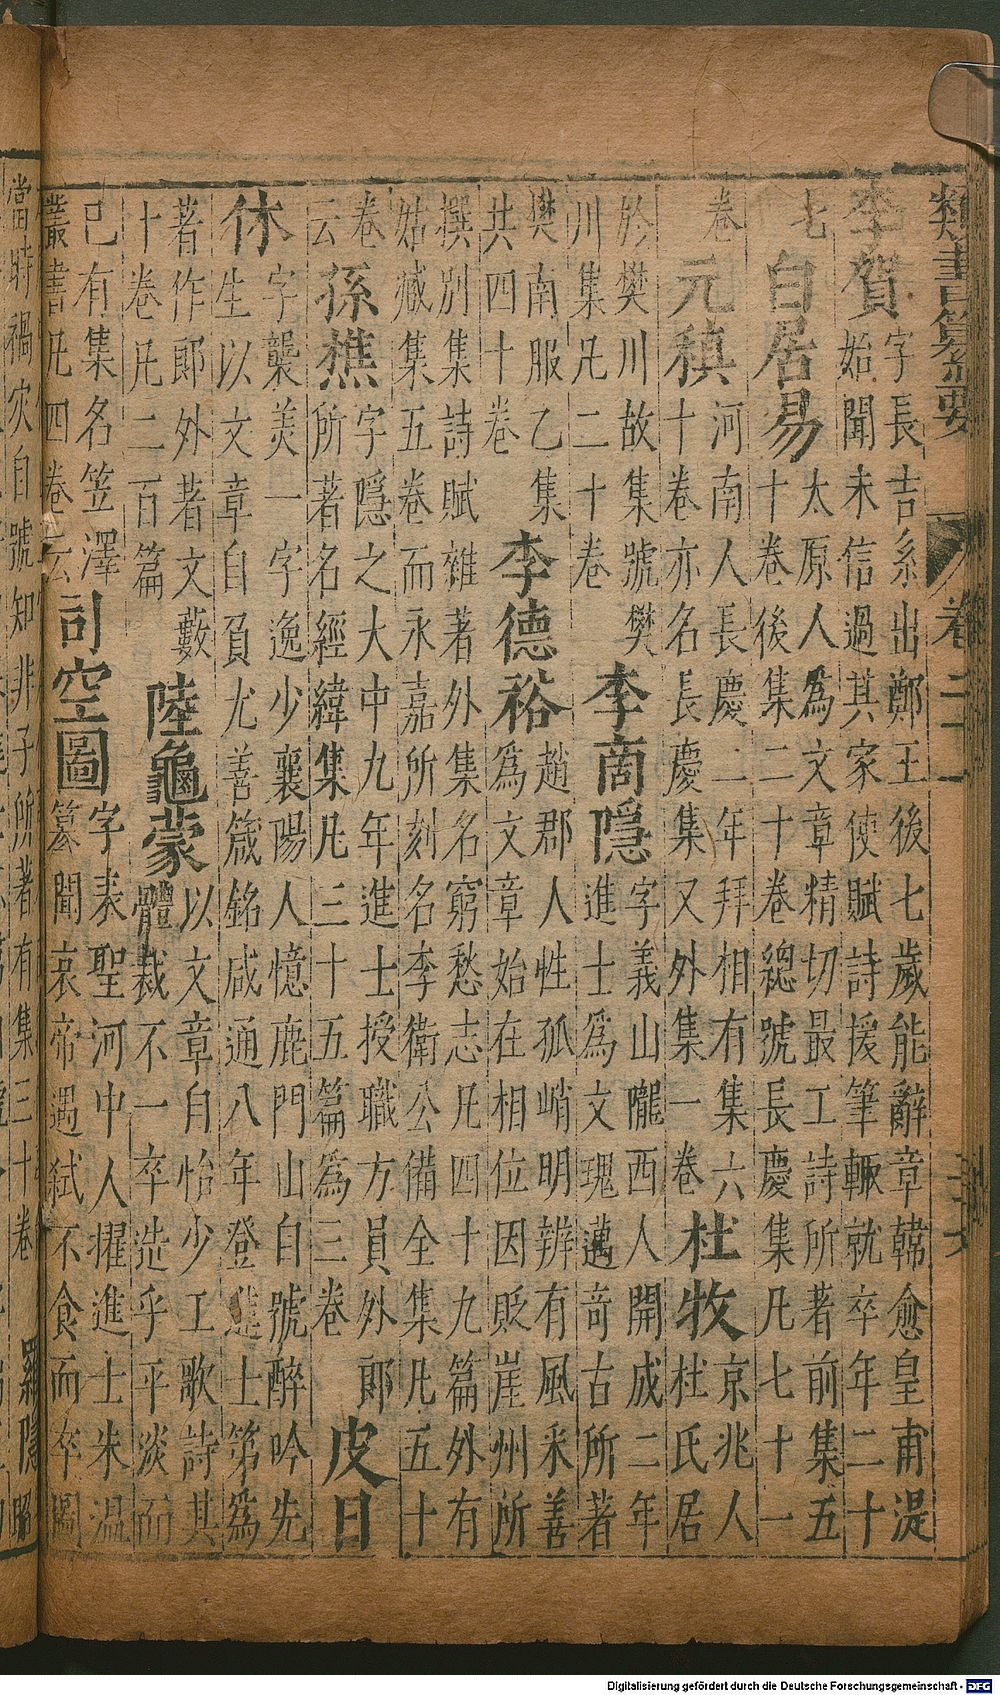 類書纂要
卷
李賀
字長吉系出鄭王後七歲能辭章韓愈皇甫湜
始聞未信過其家使賦詩援筆輙就卒年二十
七
白居易
太原人為文章精切最工詩所著前集五
十卷後集二十卷總號長慶集凡七十一
卷
元稹
河南人長慶二年拜相有集六
十卷亦名長慶集又外集一卷
杜牧
京兆人
杜氏居
於樊川故集號樊
川集凡二十卷
李商隱
字義山隴西人開成二年
進士為文瑰邁奇古所著
樊南服乙集
共四十卷
李德裕
趙郡人性孤峭明辨有風采善
為文章始在相位因貶崖州所
撰別集詩賦雜著外集名窮愁志凡四十九篇外有
姑臧集五卷而永嘉所刻名李衛公備全集凡五十
卷
云
孫樵
字隱之大中九年進士授職方員外郎
所著名經緯集凡三十五篇為三卷
皮日
休
字襲美一字逸少襄陽人憶鹿門山自號醉吟先
生以文章自負尤善箴銘咸通八年登進士第為
著作郎外著文藪
十卷凡二百篇
陸龜蒙
以文章自怡少工歌詩其
體裁不一卒造乎平淡而
己有集名笠澤
叢書凡四卷云
司空圖
字表聖河中人擢進士朱溫
篡聞哀帝遇弒不食而卒
當時禍灾自號知非子所著有集三十卷
羅隱
昭
Digitalisierung gefördert durch die Deutsche Forschungsgemeinschaft - DFG